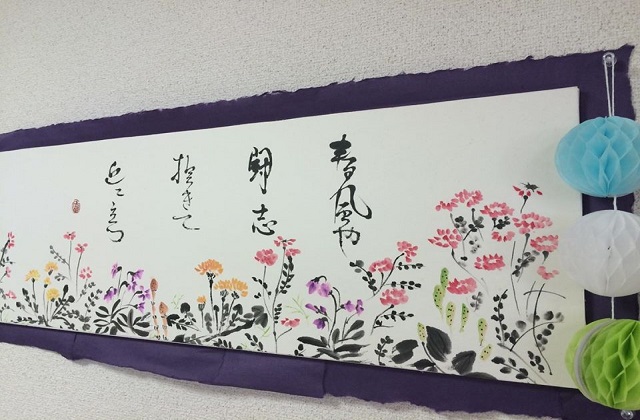 春風や
闘志
抱きて
丘に立つ